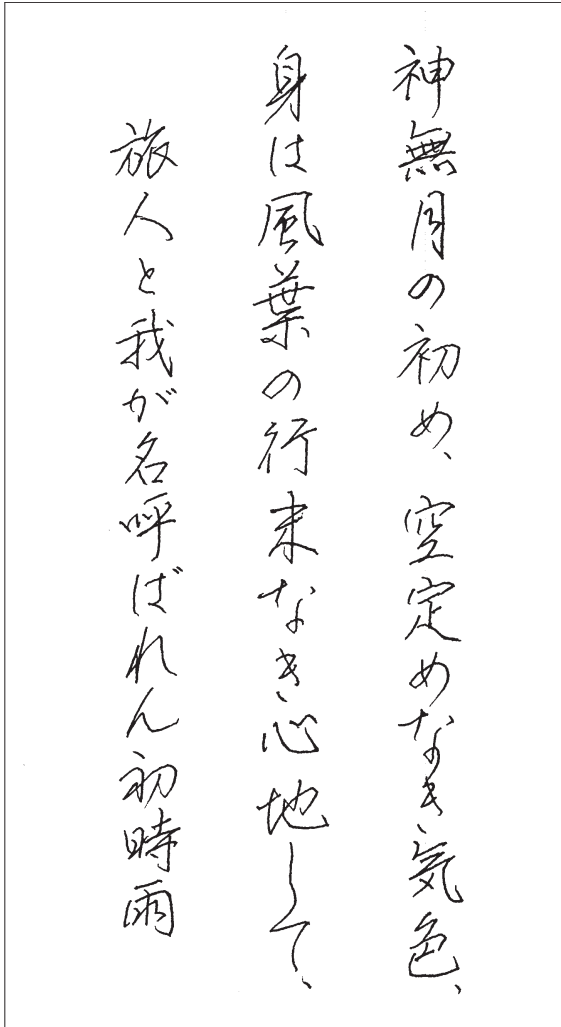 神無月の初め、空定めなき気色、
身は風葉の行末なき心地して、
旅人と我が名呼ばれん初時雨